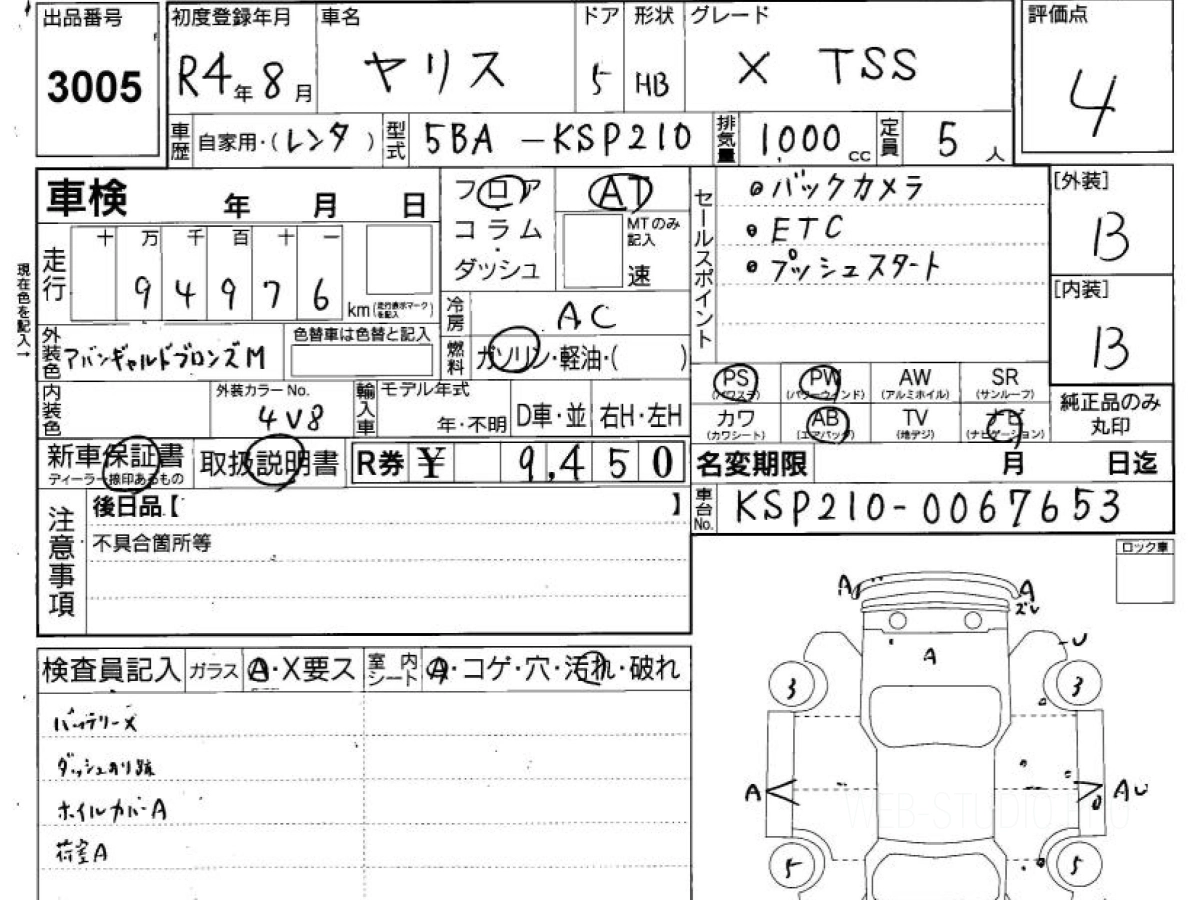 出品番号
3005
初度登録年月
R4年8月
車名
ヤリス
ドア
5
形状
HB
グレード
X TSS
評価点
4
車歴
自家用・(レンタ )
型式
5BA-KSP210
排気量
1000cc
定員
5人
車検 年 月 日
現在色を記入→
走行
十 万 千 百 十 一
9 4 9 7 6
km(走行表示マークを記入)
フロア
コラム
・
ダッシュ
AT
MTのみ記入
速
冷房
AC
燃料
ガソリン・軽油・( )
セールスポイント
バックカメラ
ETC
プッシュスタート
[外装]
B
[内装]
B
外装色
アバンギャルドブロンズM
色替車は色替と記入
内装色
外装カラーNo.
4V8
輸入車
モデル年式
年・不明
D車・並
右H・左H
PS
(パワステ)
PW
(パワーウィンド)
AW
(アルミホイル)
SR
(サンルーフ)
カワ
(カワシート)
AB
(エアバッグ)
TV
(地デジ)
ナビ
(ナビゲーション)
純正品のみ
丸印
新車保証書
ディーラー捺印あるもの
取扱説明書
R券
¥ 9,450
名変期限 月 日迄
車台No.
KSP210-0067653
注意事項
後日品【 】
不具合箇所等
ロック車
検査員記入
ガラス
A・X要ス
室内シート
A・コゲ・穴・汚れ・破れ
バッテリーX
ダッシュのり跡
ホイルカバーA
荷室A
A
A
ズレ
U
A
3
3
A
AU
5
5
WEB-STUDIO PRO